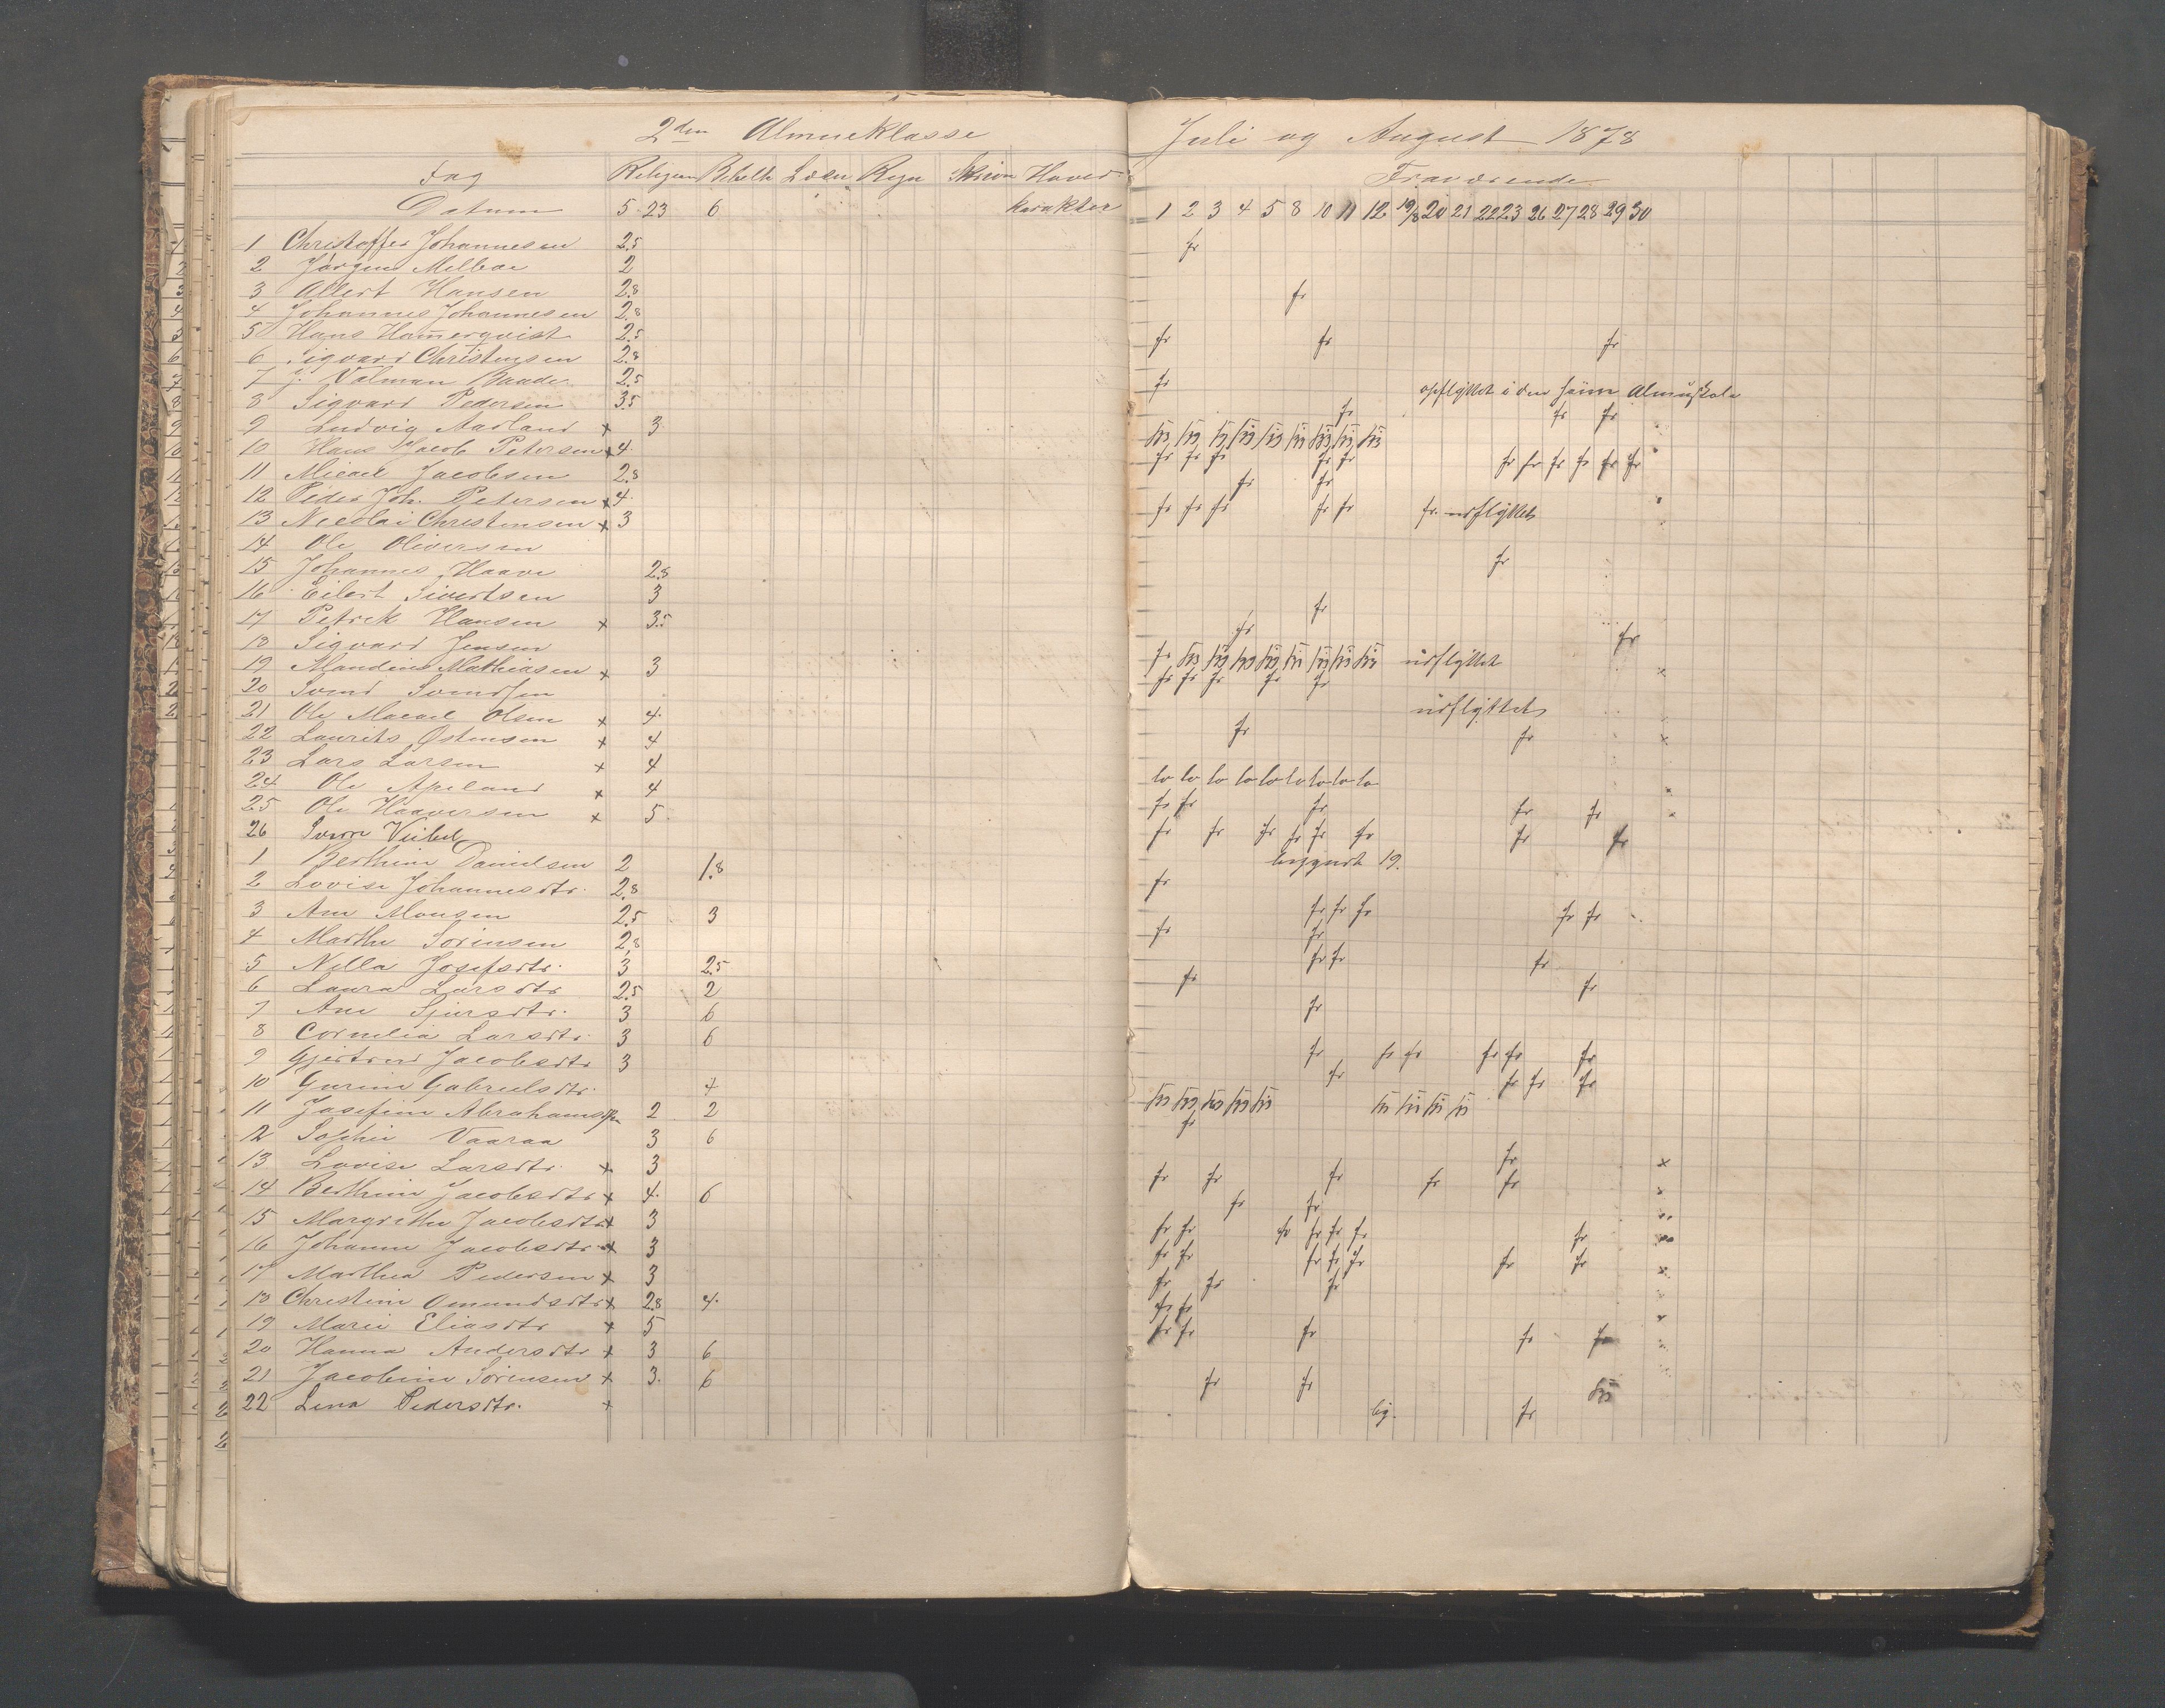 2den Almueklasse
Fag Religion Bibelh Læsn Regn Skrivn Hoved-
Datum 5 23 6 karakter
1 Christoffer Johannesen 2.5
2 Jørgen Melboe 2
3 Allert Hansen 2.8
4 Johannes Johannesen 2.8
5 Hans Hamerqvist 2.5
6 Sigvard Christensen 2.8
7 J. Valman Baade 2.5
8 Sigvard Pedersen 3.5
9 Ludvig Aarland x 3
10 Hans Jacob Petersen x 4
11 Micael Jacobsen 2.8
12 Peder Joh. Petersen x 4
13 Nicolai Christensen x 3
14 Ole Oliversen
15 Johannes Haave 2.8
16 Eilert Sivertsen 3
17 Petrik Hansen x 3.5
18 Sigvard Jensen
19 Mandius Mathiasen x 3
20 Svend Svendsen
21 Ole Macael Olsen x 4
22 Laurits Østensen x 4
23 Lars Larsen x 4
24 Ole Apeland x 4
25 Ole Haaversen x 5
26 Svem
1 Berthine Danielsen 2 1.8
2 Lovise Johannesdtr. 2.8
3 Ane Monsen 2.5 3
4 Marthe Sørensen 2.8
5 Nella Josefsdtr. 3 2.5
6 Laura Larsdtr 2.5 2
7 Ane Sjursdtr. 3 6
8 Cornelia Larsdtr. 3 6
9 Gjertrud Jacobsdtr 3
10 Gurine Gabrielsdtr. 4
11 Josefine Abrahamsen 2 2
12 Sophie Vaaraa 3 6
13 Lovise Larsdtr. x 3
14 Berthine Jacobsdtr x 4 6
15 Margrethe Jacobsdtr x 3
16 Johanne Jacobsdtr x 3
17 Marthea Pedersen x 3
18 Christine Omundsdtr x 2.8 4
19 Marie Eliasdtr x 5
20 Hanna Andersdtr x 3 6
21 Jacobine Sørensen x 3 6
22 Lena Pedersdtr. x
Juli og August 1878
Fraværende
1 2 3 4 5 8 10 11 12 19/8 20 21 22 23 26 27 28 29 30
fr
fr
fr fr fr
fr opflyttet i den Almuskole
fr fr fr
fr fr fr fr fr fr fr fr fr fr fr
fr fr
fr fr fr fr fr fr. udflyttet
fr
fr
fr fr
fr udflyttet
fr fr fr fr fr
udflyttet
fr fr
lo lo lo lo lo lo lo lo lo
fr fr fr fr fr
fr fr fr fr fr fr fr fr
begyndt 19.
fr
fr fr fr fr fr
fr fr
fr fr fr
fr fr
fr
fr fr fr fr fr fr
fr fr fr fr
fr
fr x
fr fr fr fr fr
fr fr
fr fr fr fr fr fr fr
fr fr fr fr fr fr fr
fr fr fr
fr fr
fr fr fr fr fr
fr fr
bg. fr